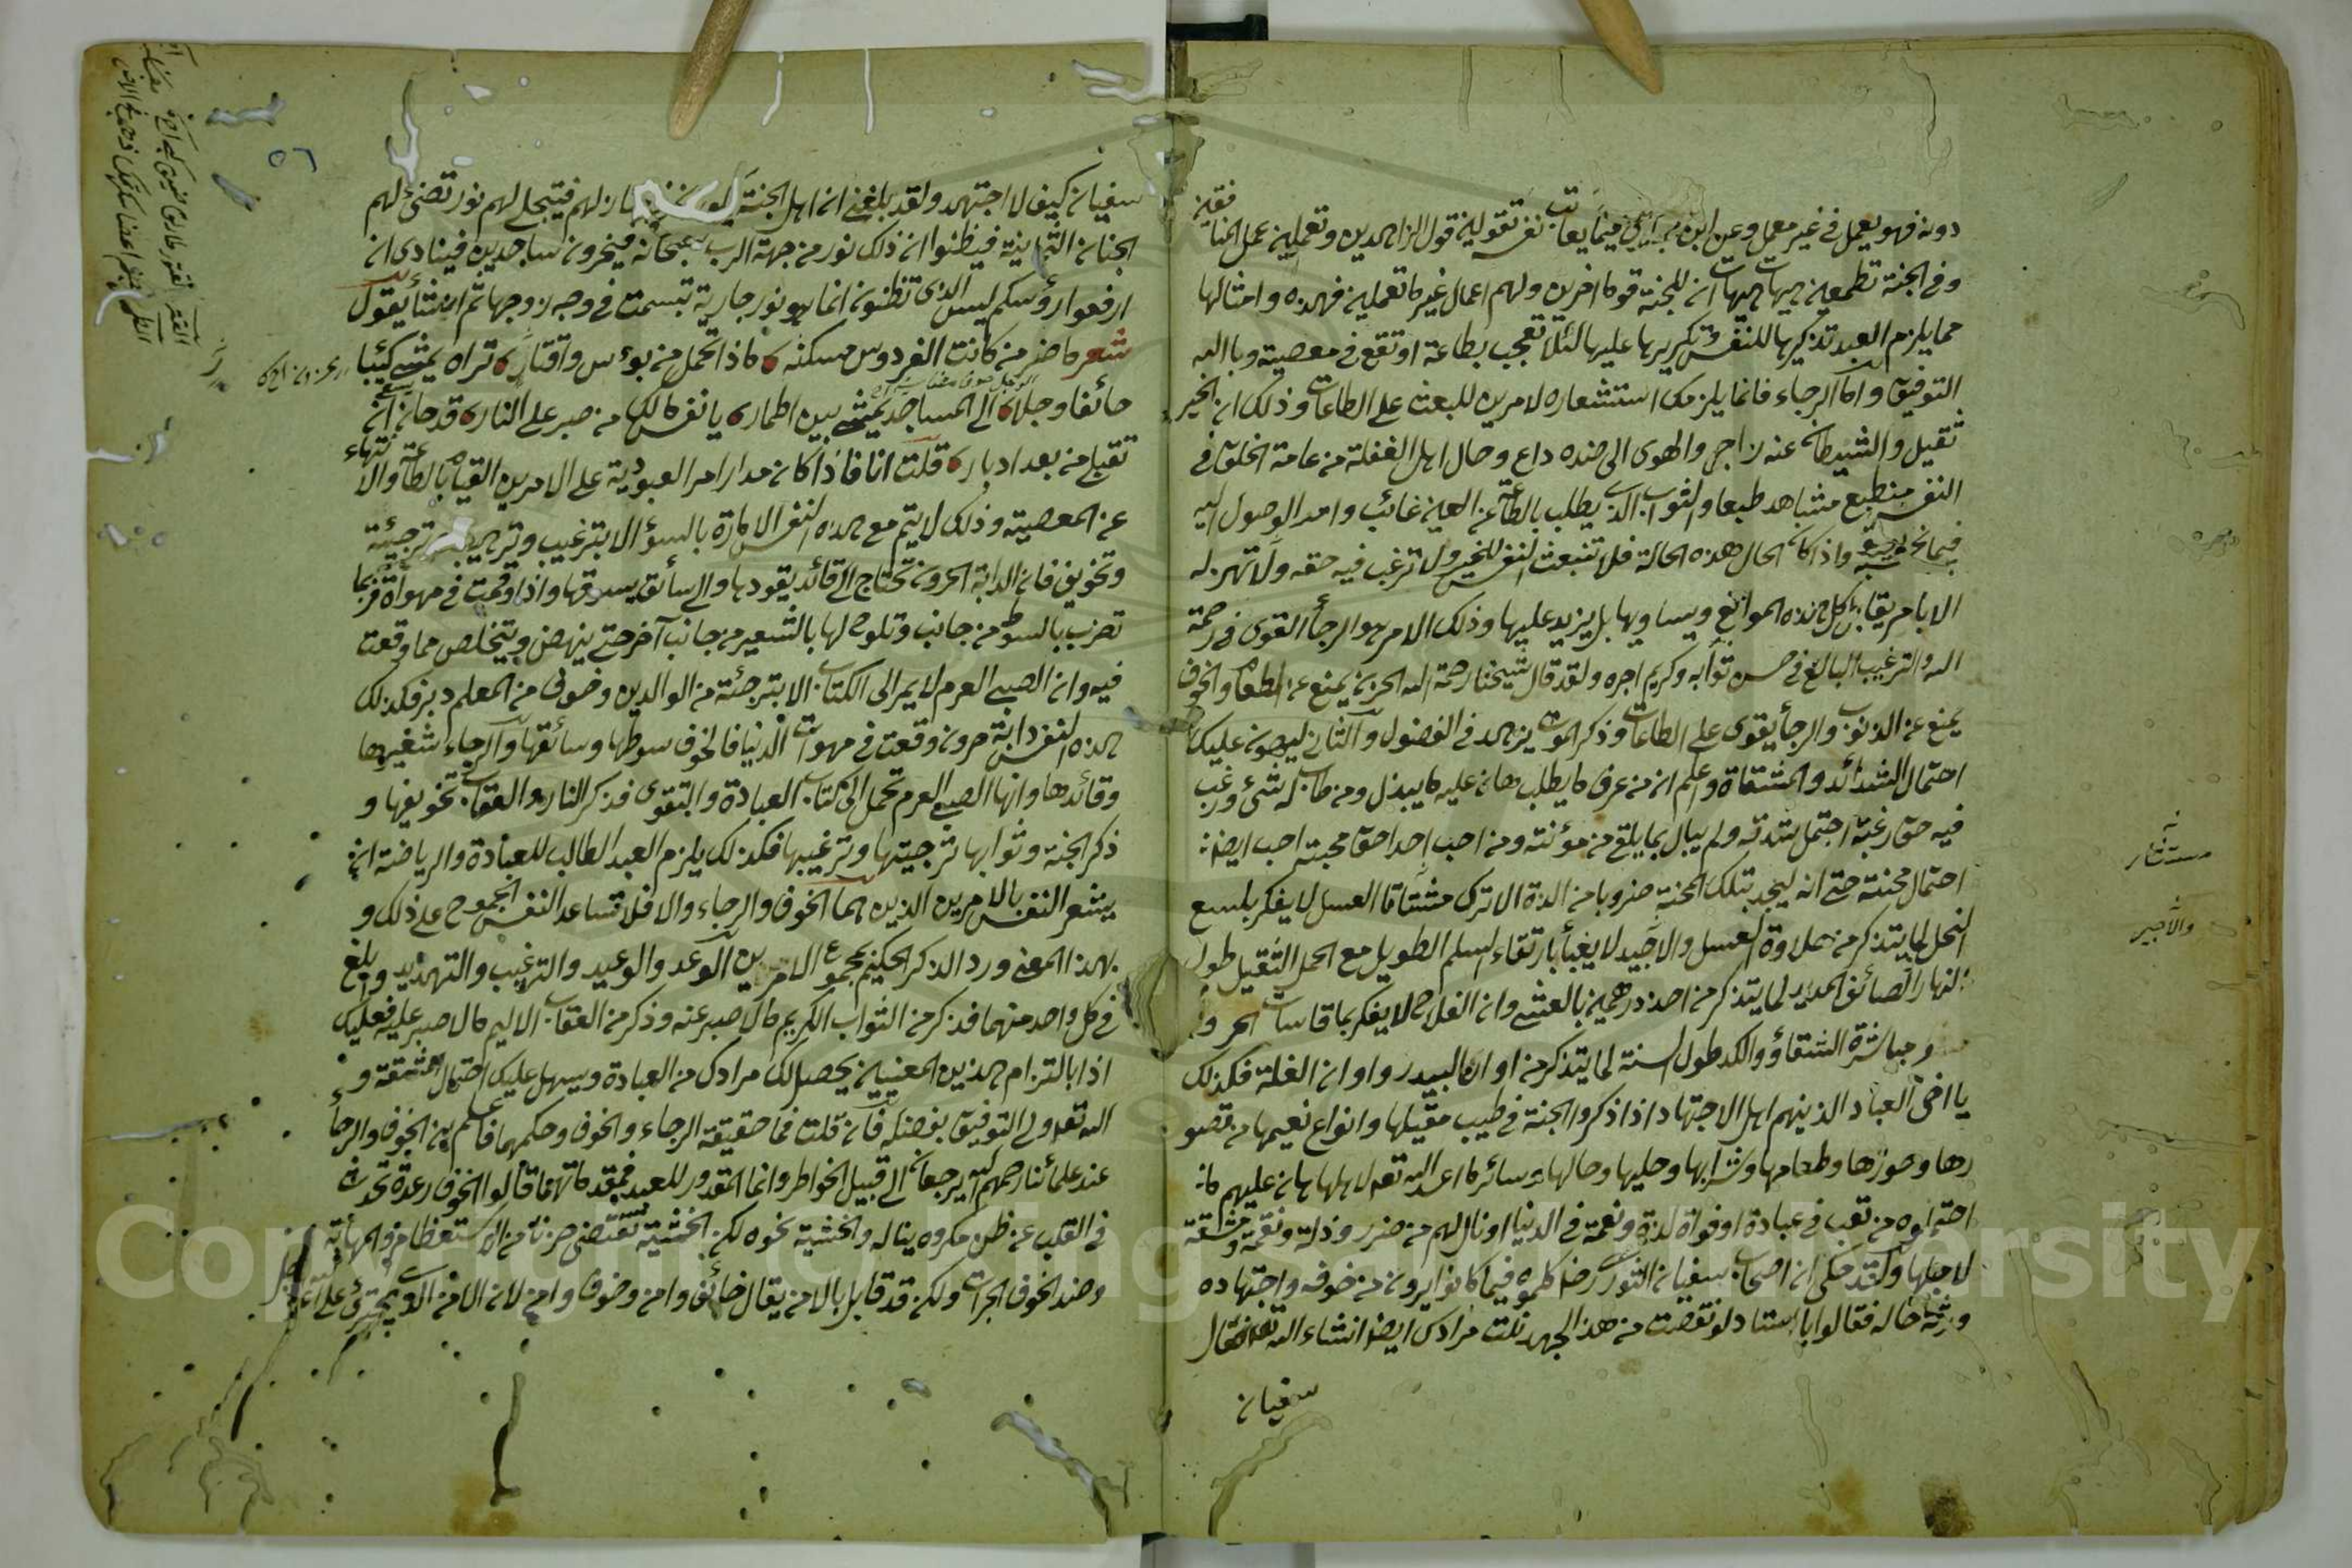 دونه فهو يعمل في غير معمل وعن ابن فيما يعاتب نفسه تقولين قول الزاهدين وتعملين عمل المنافقين
وفي الجنة تطمعين هيهات هيهات ان للجنة قوما اخرين ولهم اعمال غير ما تعملين فهذه وامثالها
مما يلزم العبد تذكيرها للنفس وتكريرها عليها لئلا تعجب بطاعة او تقع في معصية وبالله
التوفيق واما الرجاء فانما يلزمك استشعاره لامرين للبعث على الطاعات وذلك ان الخير
ثقيل والشيطان عنه زاجر والهوى الى ضده داع وحال اهل الغفلة من عامة الخلق في
النفس منطبع مشاهد طبعا والثواب الذي يطلب بالطاعة عن العين غائب وامد الوصول اليه
فيما تحسبه بعيد واذا كان الحال هذه الحالة فلا تنبعث النفس للخير ولا ترغب فيه حقه ولا تهتز له
الا بامر يقابل كل هذه الموانع ويساويها بل يزيد عليها وذلك الامر هو الرجأ القوى في رحمة
الله والترغيب البالغ في حسن ثوابه وكريم اجره ولقد قال شيخنا رحمة الله الحزن يمنع عن الطعام والخوف
يمنع عن الذنوب والرجأ يقوى على الطاعات وذكر الموت يزهد في الفضول والثاني ليهون عليك
احتمال الشدائد والمشقاة واعلم ان من عرف ما يطلب هان عليه ما يبذل ومن طاب له شئ ورغب
فيه حق رغبة احتمل شدته ولم يبال بما يلقى من مؤنته ومن احب احدا حق محبته احب ايضا
احتمال محنته حتى انه ليجد بتلك المحنة ضروبا من الذة الا ترى مشتاقا العسل لا يفكر بلسع
النحل لما يتذكر من حلاوة العسل والاجير لا يعبأ بارتقاء السلم الطويل مع الحمل الثقيل طول
النهار الصائف المديد لما يتذكر من اخذ درهمين بالعشى وان الفلاح لا يفكر بمقاسات الحر و
ومباشرة الشقاؤ والكد طول السنة لما يتذكر من اوان البيدر واوان الغلة فكذلك
يا اخى العباد الذينهم اهل الاجتهاد اذا ذكروا الجنة في طيب مقيلها وانواع نعيمها من قصو
رها وحورها وطعامها وشرابها وحليها وحللها وسائر ما اعد الله تعالى لاهلها هان عليهم ما
احتملوه من تعب في عبادة او فواة لذة ونعمة في الدنيا او نال لهم من ضرر وذلة ونقمة ومشقة
لاجلها ولقد حكى ان اصحاب سفيان الثوري رض كلموه فيما كانوا يرون من خوفه واجتهاده
ورثة حاله فقالوا يا استاد لو نقصت من هذا الجهد نلت مرادك ايضا انشاء الله تعالى فقال
سفيان
سفيان كيف لا اجتهد ولقد بلغنى ان اهل الجنة منازلهم فيتجلى لهم نور تضئ لهم
الجنان الثمانية فيظنوا ان ذلك نور من جهة الرب سبحانه فيخرون ساجدين فينادى ان
ارفعوا رؤسكم ليس الذى تظنون انما هو نور جارية تبسمت في وجه زوجها ثم انشأ يقول
شعر ما ضر من كانت الفردوس مسكنه ماذا تحمل من بوءس واقتار تراه يمشى كئيبا
خائفا وجلا الى المساجد يمشى بين اطمار يا نفس مالك من صبر على النار قد حان ان
تقبل من بعد ادبار قلت انا فاذا كان مدار امر العبودية على الامرين القيام بالطاعة والا نتهاء
عن المعصية وذلك لا يتم مع هذه النفس الامارة بالسؤ الا بترغيب وترهيب ترجئة
وتخويف فان الدابة الحرون تحتاج الى قائد يقودها والى سائق يسوقها واذا وقعت في مهواة فربما
تضرب بالسوط من جانب وتلوح لها بالشعير من جانب آخر حتى ينهض ويتخلص مما وقعت
فيه وان الصبى العرم لا يمر الى الكتاب الا بترجئة من الوالدين وخوف من المعلم فكذلك
هذه النفس دابة حرون وقعت في مهوات الدنيا فالخوف سوطها وسائقها والرجاء شعيرها
وقائدها وانها الصبى العرم تحمل الى كتاب العبادة والتقوى فذكر النار والعقاب تخويفها و
ذكر الجنة وثوابها ترجيتها وترغيبها فكذلك يلزم العبد الطالب للعبادة والرياضة ان
يشعر النفس بالامرين الذين هما الخوف والرجاء والا فلا تساعد النفس الجموح على ذلك و
بهذا المعنى ورد الذكر الحكيم بمجموع الامرين الوعد والوعيد والترغيب والتهديد وبلغ
في كل واحد منهما فذكر من الثواب الكريم مالا صبر عنه وذكر من العقاب الاليم مالا صبر عليه فعليك
اذا بالتزام هذين المعنيين يحصل لك مرادك من العبادة وسهل عليك احتمال المشقة و
الله تعالى ولى التوفيق بفضله فان قلت فما حقيقة الرجاء والخوف وحكمهما فاعلم ان الخوف والرجأ
عند علمائنا رحمهم الله يرجعان الى قبيل الخواطر وانما المقدور للعبد مقدماتهما قالوا الخوف رعدة تحدث
في القلب عن ظن مكروه يناله والخشية نحوه لكن الخشية تقتضى ضربا من الاستعظام والمهابة
وضد الخوف الجرات ولكن قد قابل بالامن يقال خائف وامن وخوف وامن لان الامن الذى يجترئ على الله